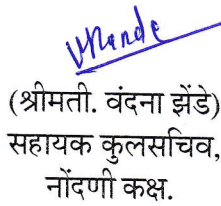 (श्रीमती. वंदना झेंडे)
सहायक कुलसचिव,
नोंदणी कक्ष.